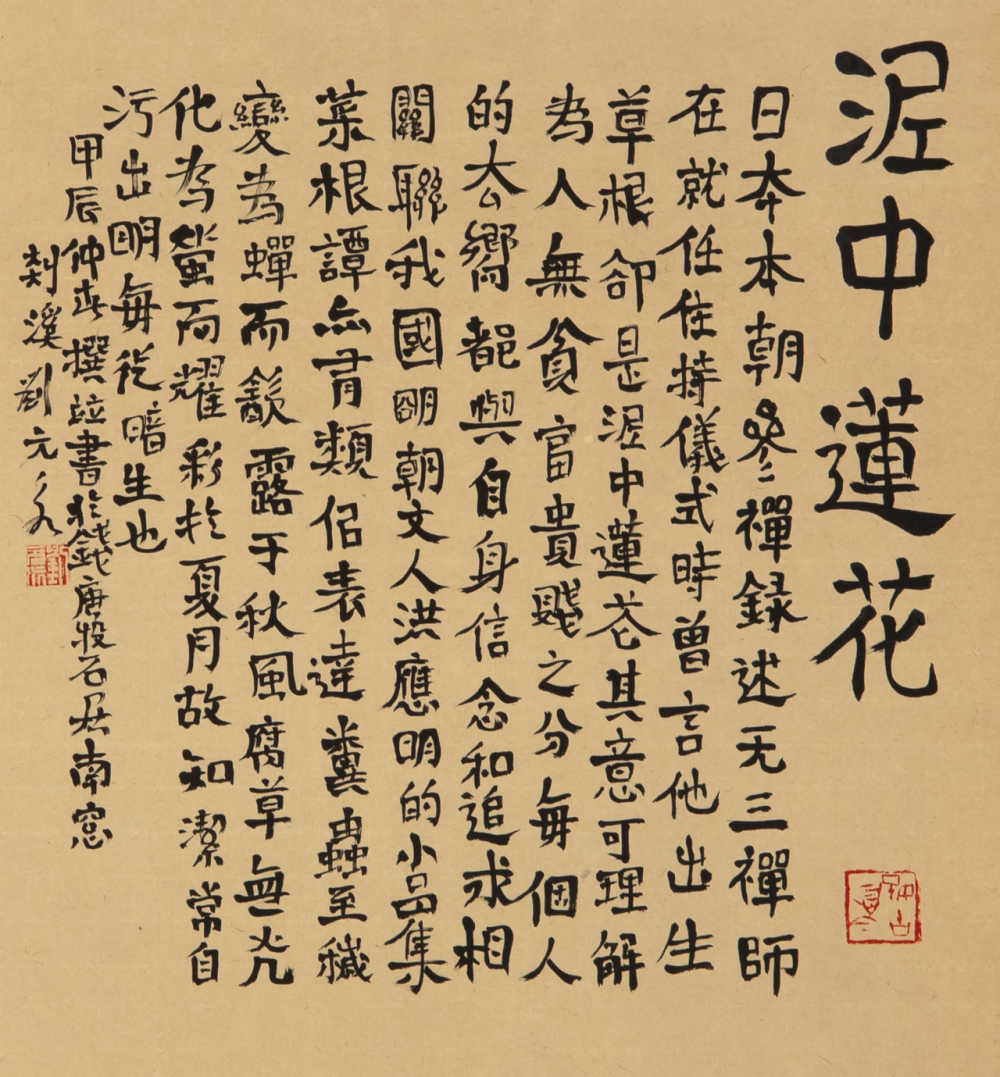 泥中蓮花
日夲本朝參禪録述无三禪師
在就任住持儀式時曾言他出生
草根卻是泥中蓮花其意可理解
為人無貧富貴賤之分每個人
的厺嚮都與自身信念和追求相
關聯我國明朝文人洪應明的小品集
菜根譚亦有類佀表達糞蟲至穢
變為蟬而飲露于秋風腐草無光
化為螢而耀彩於夏月故知潔常自
污出明每從暗生也
甲辰仲春撰竝書於錢唐牧石居南窓
剡溪劉元